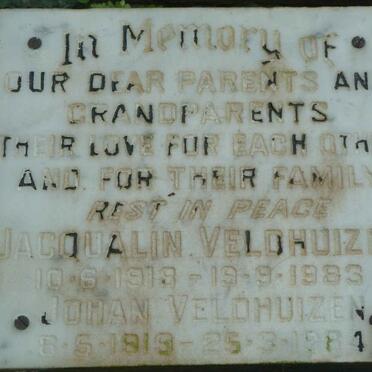 In Memory of
OUR DEAR PARENTS AN
GRANDPARENTS
THEIR LOVE FOR EACH OTH
AND FOR THEIR FAMILY
REST IN PEACE
JACQUALIN VELDHUIZE
10-6-1918 - 19-9-1983
JOHAN VELDHUIZEN